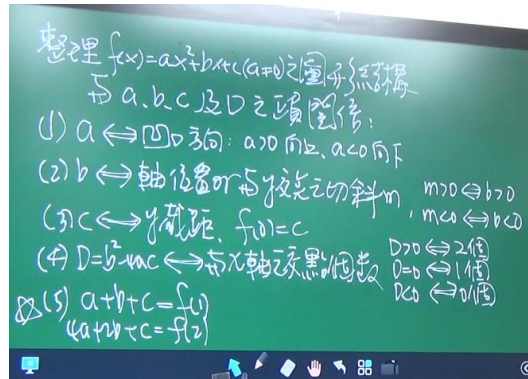 整理 f(x)=ax²+bx+c(a≠0)之圖形結構
與 a、b、c 及 D 之項關係:
(1) a⟺凹口方向: a>0 向上、a<0 向下
(2) b⟺軸位置or與y交點之切斜m, m>0⟺b>0
m<0⟺b<0
(3) c⟺y截距、f(0)=c
(4) D=b²-4ac⟺與x軸之交點個數
D>0⟺2個
D=0⟺1個
D<0⟺0個
☆(5) a+b+c=f(1)
4a+2b+c=f(2)